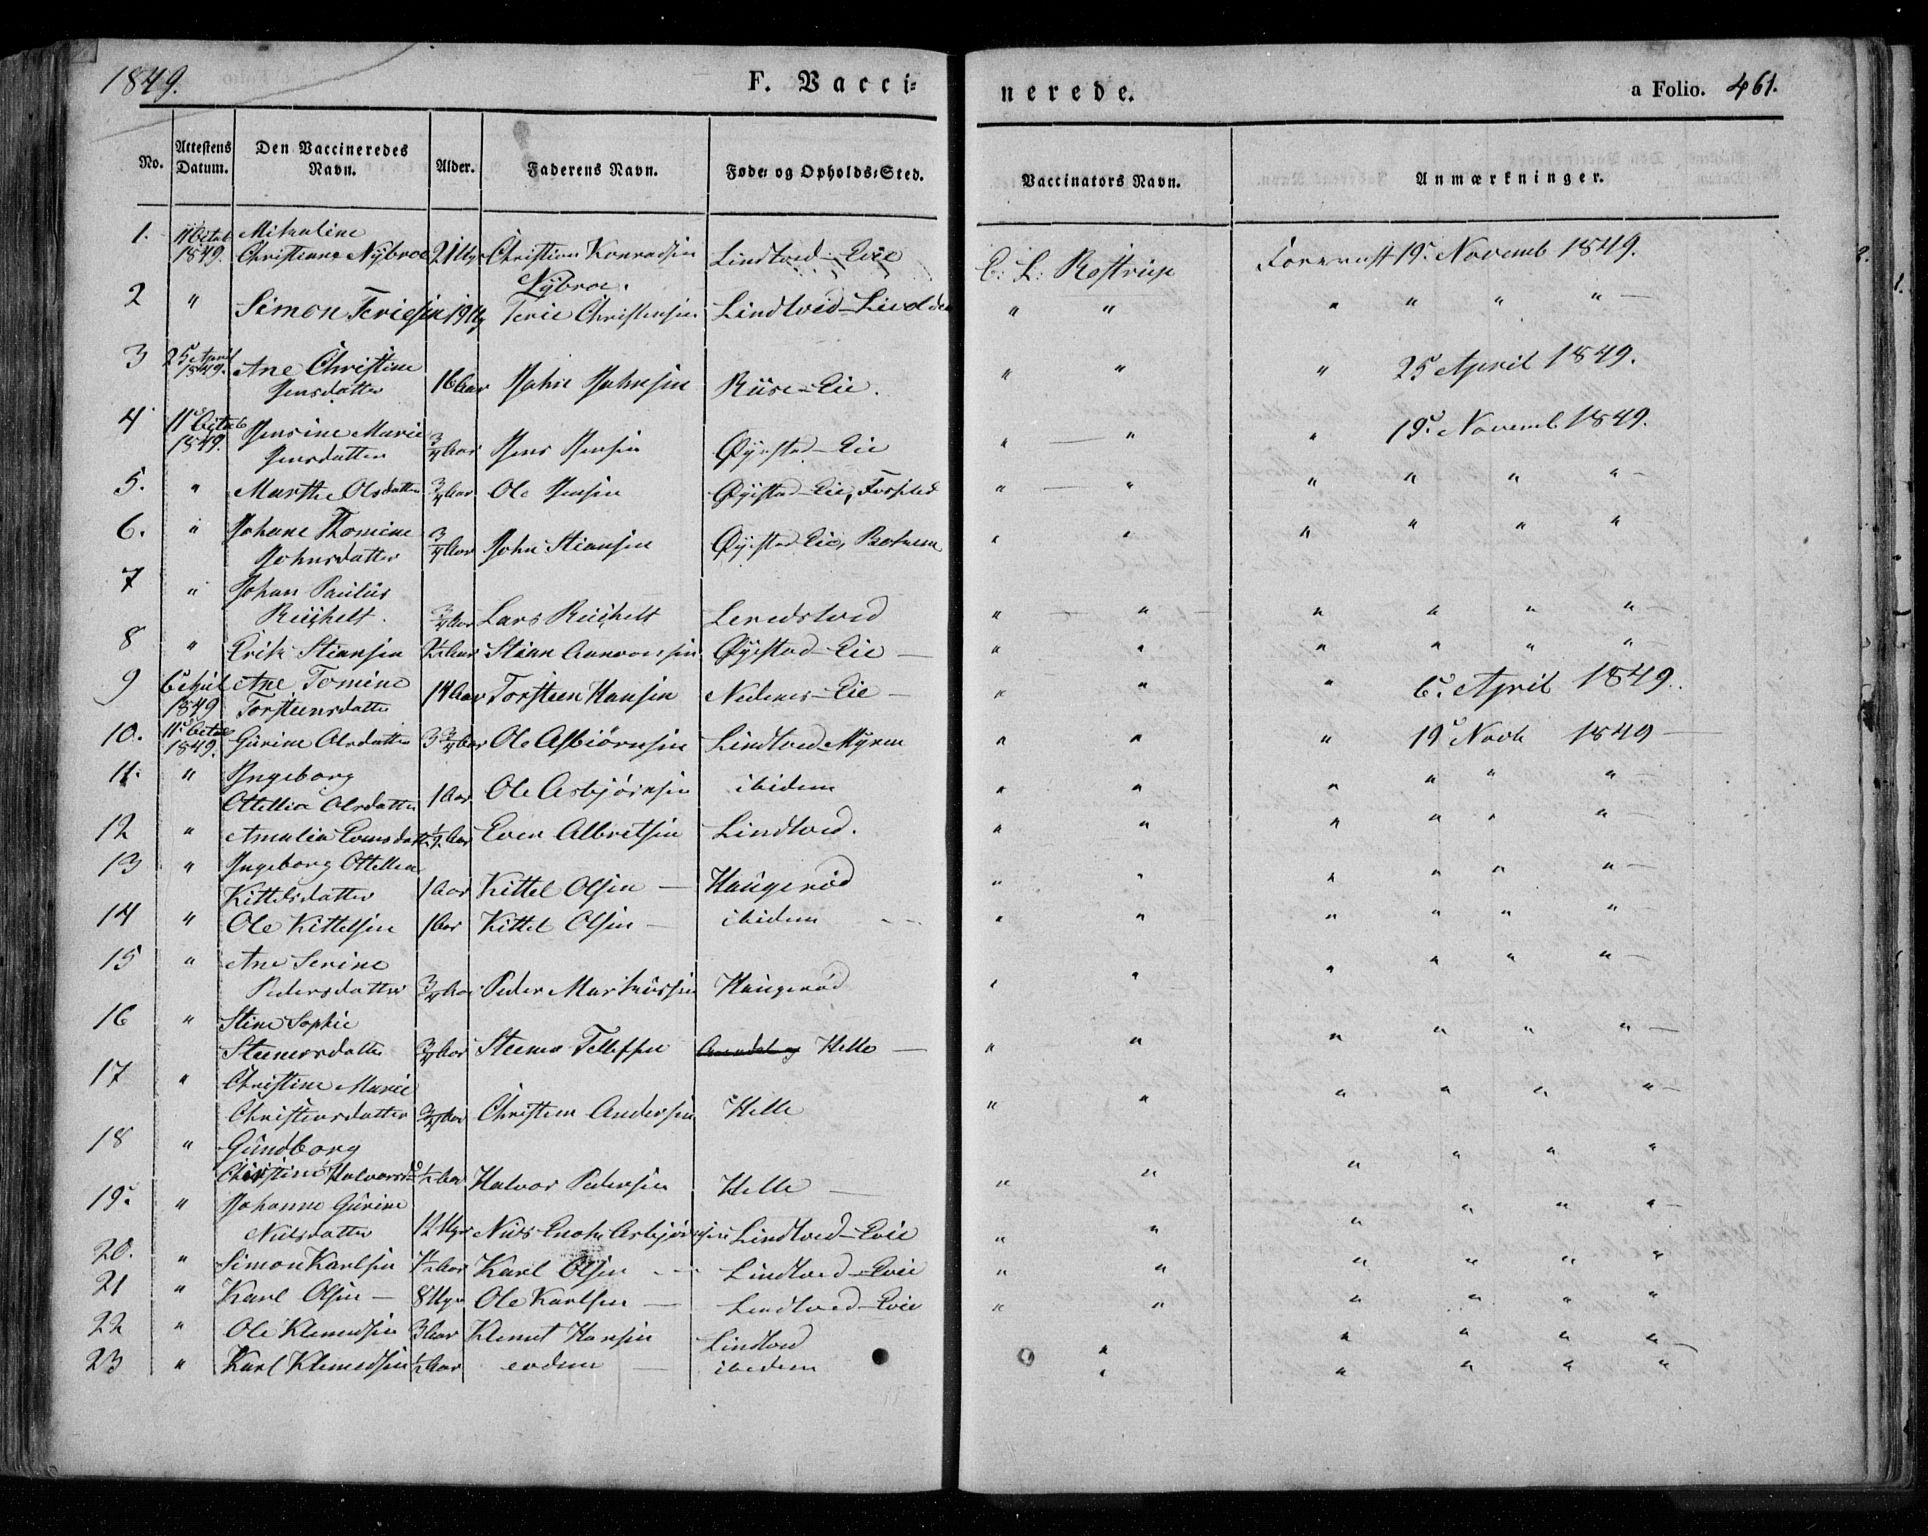 1849. F. Vacci= nerede. a Folio. 461.
No. Attestens Datum. Den Vaccineredes Navn. Alder. Faderens Navn. Føde= og Opholds=Sted. Vaccinators Navn. Anmærkninger.
1. 11 Octob 1849. Mikaline Christiane Nÿbroe 21 Uger Christian Konradsen Nÿbroe. Lindtved-Eie C: L: Rostrup 19. Novemb 1849.
2 " Simon Teriesen 19 Ug Terie Christensen Lindtved " " " " " "
3 25 April 1849. Ane Christine Jensdatter 16 Aar Riise-Eie. " " " 25 April 1849.
4 11 Octob 1849. Jensine Marie Jensdatter 3/4 Aar Jens Jensen Øÿestad-Eie " " " 19. Novemb 1849.
5. " Marthe Olsdatter 3/4 Aar Ole Jensen Øÿestad-Eie, " " " " " "
6. " Johane Thomine Johnsdatter 3/4 Aar John Stiansen Øÿestad Eie, " " " " " "
7 " Johan Paulus 3/4 Aar Lars Lerestved " " " " " "
8 " Erik Stiansen Stian Aanonsen Øÿestad-Eie " " " " " "
9 6 April 1849 Ane Tomine Torsteensdatter 14 Aar Torsteen Hansen Nedenes-Eie " " " 6. April 1849.
10. 11 Octob 1849. Gurine Olsdatter 3 3/4 Aar Ole Asbiørnsen Lindtved Mÿren " " " 19 Novb 1849
11. " Ingeborg Ottellia Olsdatter 1 Aar Ole Asbjørnsen ibidem " " " " " "
12 " Amalia Evensdatter 1/2 Aar Even Albretsen Lindtved. " " " " " "
13 " Ingeborg Ottellia Kittelsdatter 1 Aar Kittel Olsen Haugerød " " " " " "
14 " Ole Kittelsen 1 Aar Kittel Olsen ibidem " " " " " "
15 " Ane Serine Pedersdatter 3/4 Aar Peder Markussen Haugerød " " " " " "
16 " Stine Sophie Steenersdatter 3/4 Aar Steener Tellefsen Arendal og Helle " " " " " "
17 " Christine Marie Christensdatter 3/4 Aar Christen Andersen Helle " " " " " "
18 " Gundborg Christine Halvorsd 1/2 Aar Halvor Pedersen Helle " " " " " "
19. " Johanne Gurine Nilsdatter 12 Uger Nils Enok Asbjørnsen Lindtved-Eie " " " " " "
20. " Simon Karlsen 1/2 Aar Karl Olsen Lindtved-Eie " " " " " "
21 " Karl Olsen 8 Uger Ole Karlsen Lindtved-Eie " " " " " "
22 " Ole Klemedsen 3 Aar Klemet Hansen Lindtved " " " " "
23 " Karl Klemedsen 1/2 Aar eodem ibidem " " " " "